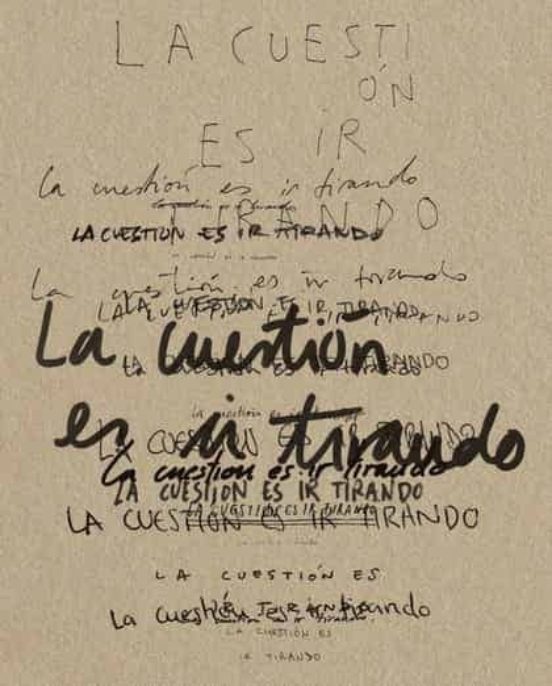 LA CUESTI
ÓN
ES IR
la cuestión es ir tirando
TIRANDO
LA CUESTION ES IR TIRANDO
La cuestión es ir tirando
LA CUESTION ES IR TIRANDO
La cuestión
LA CUESTION ES IR TIRANDO
es ir tirando
LA CUESTION ES IR TIRANDO
La cuestion es ir tirando
LA CUESTION ES IR TIRANDO
LA CUESTION ES IR TIRANDO
LA CUESTION ES IR TIRANDO
LA CUESTIÓN ES
La cuestión es ir tirando
LA CUESTIÓN ES
IR TIRANDO